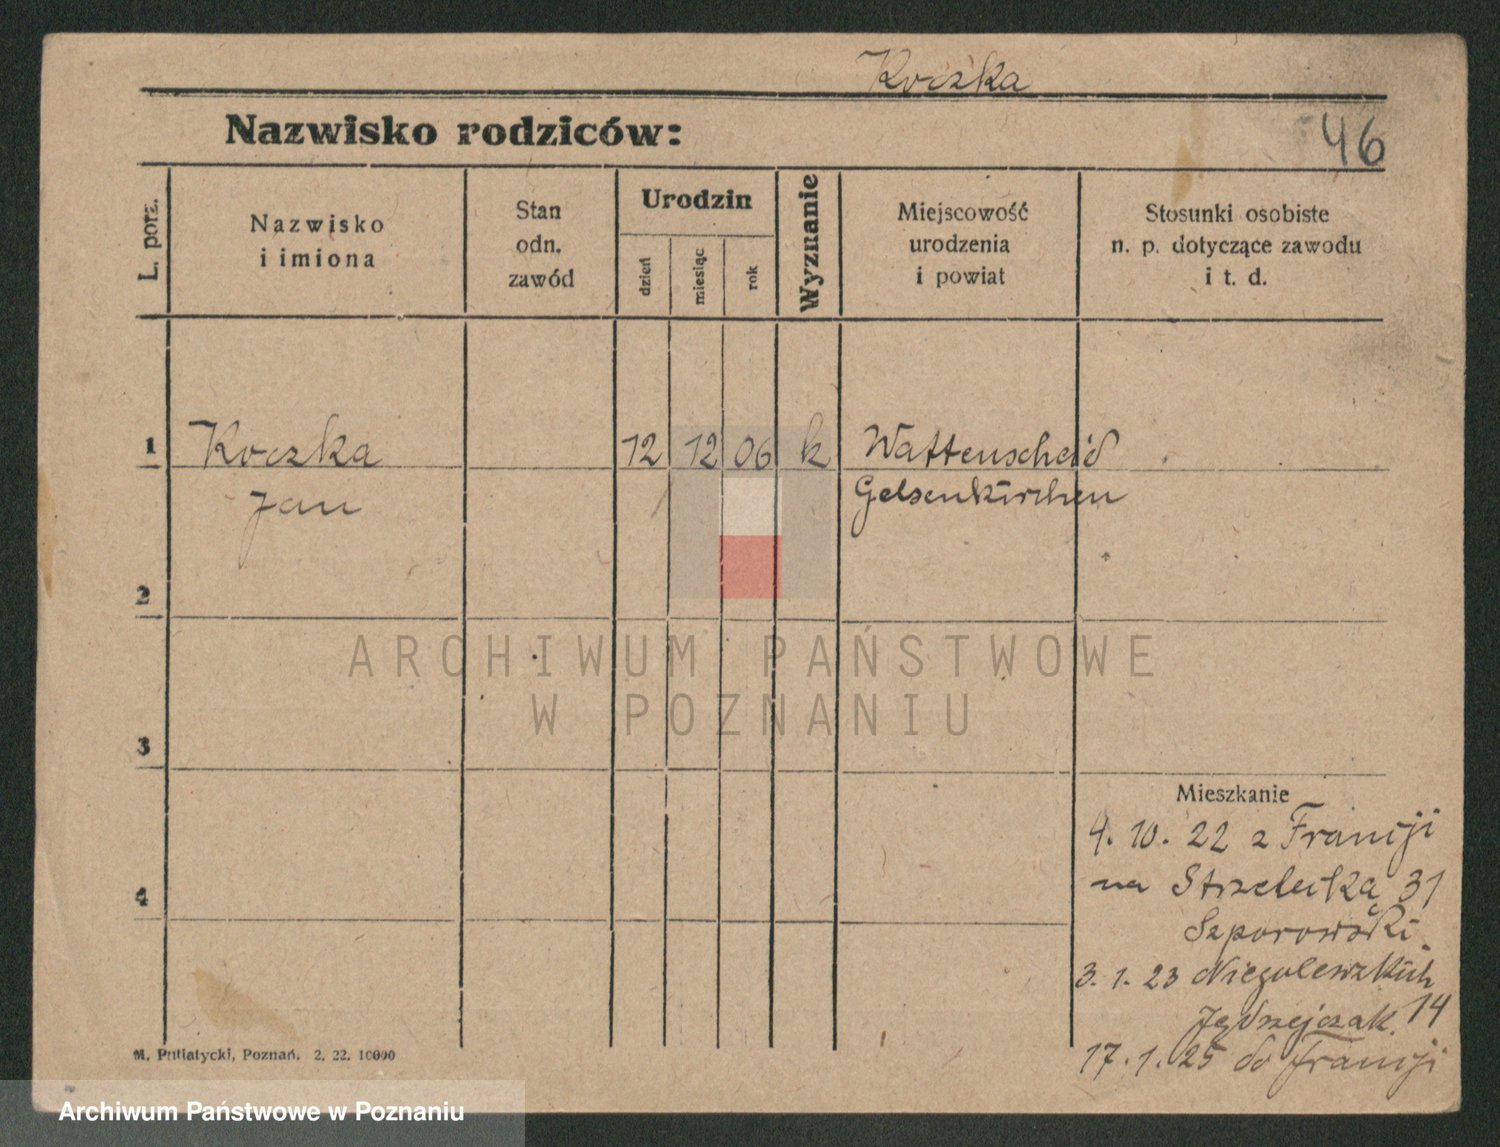 Koczka
Nazwisko rodziców:
46
L. porz.
Nazwisko
i imiona
Stan
odn.
zawód
Urodzin
dzień
miesiąc
rok
Wyznanie
Miejscowość
urodzenia
i powiat
Stosunki osobiste
n. p. dotyczące zawodu
i t. d.
1 Koczka 12 12 06 k Wattenscheid
Jan Gelsenkirchen
2
ARCHIWUM PAŃSTWOWE
W POZNANIU
3
Mieszkanie
4. 10. 22 z Francji
4
na Strzelecką 31
Szporowski.
3. 1. 23 Niegolewskich
Jędrzejczak 14
17. 1. 25 do Francji
M. Putiatycki, Poznań. 2. 22. 10000
Archiwum Państwowe w Poznaniu